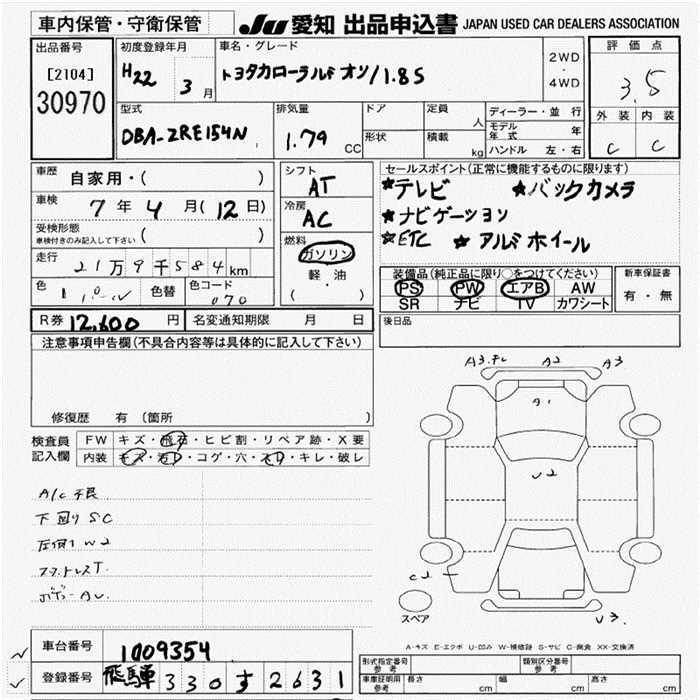 車内保管・守衛保管
JU 愛知 出品申込書 JAPAN USED CAR DEALERS ASSOCIATION
出品番号
[2104]
30970
初度登録年月
H22 3月
車名・グレード
トヨタカローラルミオン/1.8S
2WD
・
4WD
評価点
3.5
外装 内装
C C
型式
DBA-ZRE154N
排気量
1.79 CC
ドア
形状
定員 人
積載 kg
ディーラー・並行
モデル年式 年
ハンドル 左・右
車歴
自家用・( )
車検
7年4月(12日)
受検形態
車検付きのみ記入して下さい ( )
走行
21万9千584km
色
色替
色コード
070
シフト
AT
冷房
AC
燃料
ガソリン
軽・油
( )
セールスポイント(正常に機能するものに限ります)
★テレビ ★バックカメラ
★ナビゲーション
★ETC ★アルミホイール
装備品(純正品に限り○をつけてください)
PS PW エアB AW
SR ナビ TV カワシート
新車保証書
有・無
後日品
R券 12,600円
名変通知期限 月 日
注意事項申告欄(不具合内容等は具体的に記入して下さい)
修復歴 有 (箇所 )
検査員記入欄
FW キズ・飛石・ヒビ割・リペア跡・X要
内装 キズ・汚レ・コゲ・穴・スレ・キレ・破レ
A/C不良
下回りSC
左側1 W2
ボデーAU
A3 A2 A3
A1
U2
C2
U3
スペア
A-キズ E-エクボ U-凹み W-補修跡 S-サビ C-腐食 XX-交換済
車台番号
1009354
登録番号
飛騨 330 す 2631
型式指定番号 参考
類別区分番号 参考
車庫証明用 参考 長さ cm 幅 cm 高さ cm